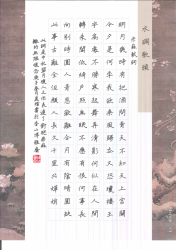 水調歌頭
宋蘇軾詞
明月幾時有把酒問青天不知天上宮闕
今夕是何年我欲乘風歸去又恐瓊樓玉
宇高處不勝寒起舞弄清影何似在人間
轉朱閣低綺戶照無眠不應有恨何事長
向別時圓人有悲歡離合月有陰晴圓缺
此事古難全但願人長久千里共嬋娟